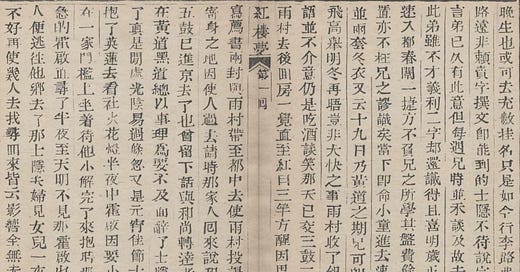 晚生也或可去充數挂名只是如今行李路
路遠非賴賣字撰文即能到的士隱不待說
言弟已久有此意但每遇兄時並未談及故
此弟雖不才義利二字却還識得且喜明歲
速入都春闈一捷方不負兄之所學其盤費餘
置亦不枉兄之謬識矣當下即命小童進去速
並兩套冬衣又云十九日乃黃道之期兄可
飛高舉明冬再晤豈非大快之事雨村收了銀
語並不介意仍是吃酒談笑那天已交三鼓二
雨村去後回房一覺直至紅日三竿方醒因思
紅樓夢 第一回
寫薦書兩封與雨村帶至都中去使雨村投
寄身之地因使人過去請時那家人回來說
五鼓已進京去了也曾留下話與和尚轉達
在黃道黑道總以事理為要不及面辭了士隱
了真是閒處光陰易過倏忽又是元宵佳節
抱了英蓮去看社火花燈半夜中霍啟因要小
在一家門檻上坐着待他小解完了來抱時
急的霍啟直尋了半夜至天明不見那霍啟
人便逃往他鄉去了那士隱夫婦見女兒一夜
不好再使幾人去找尋回來皆云影響全無